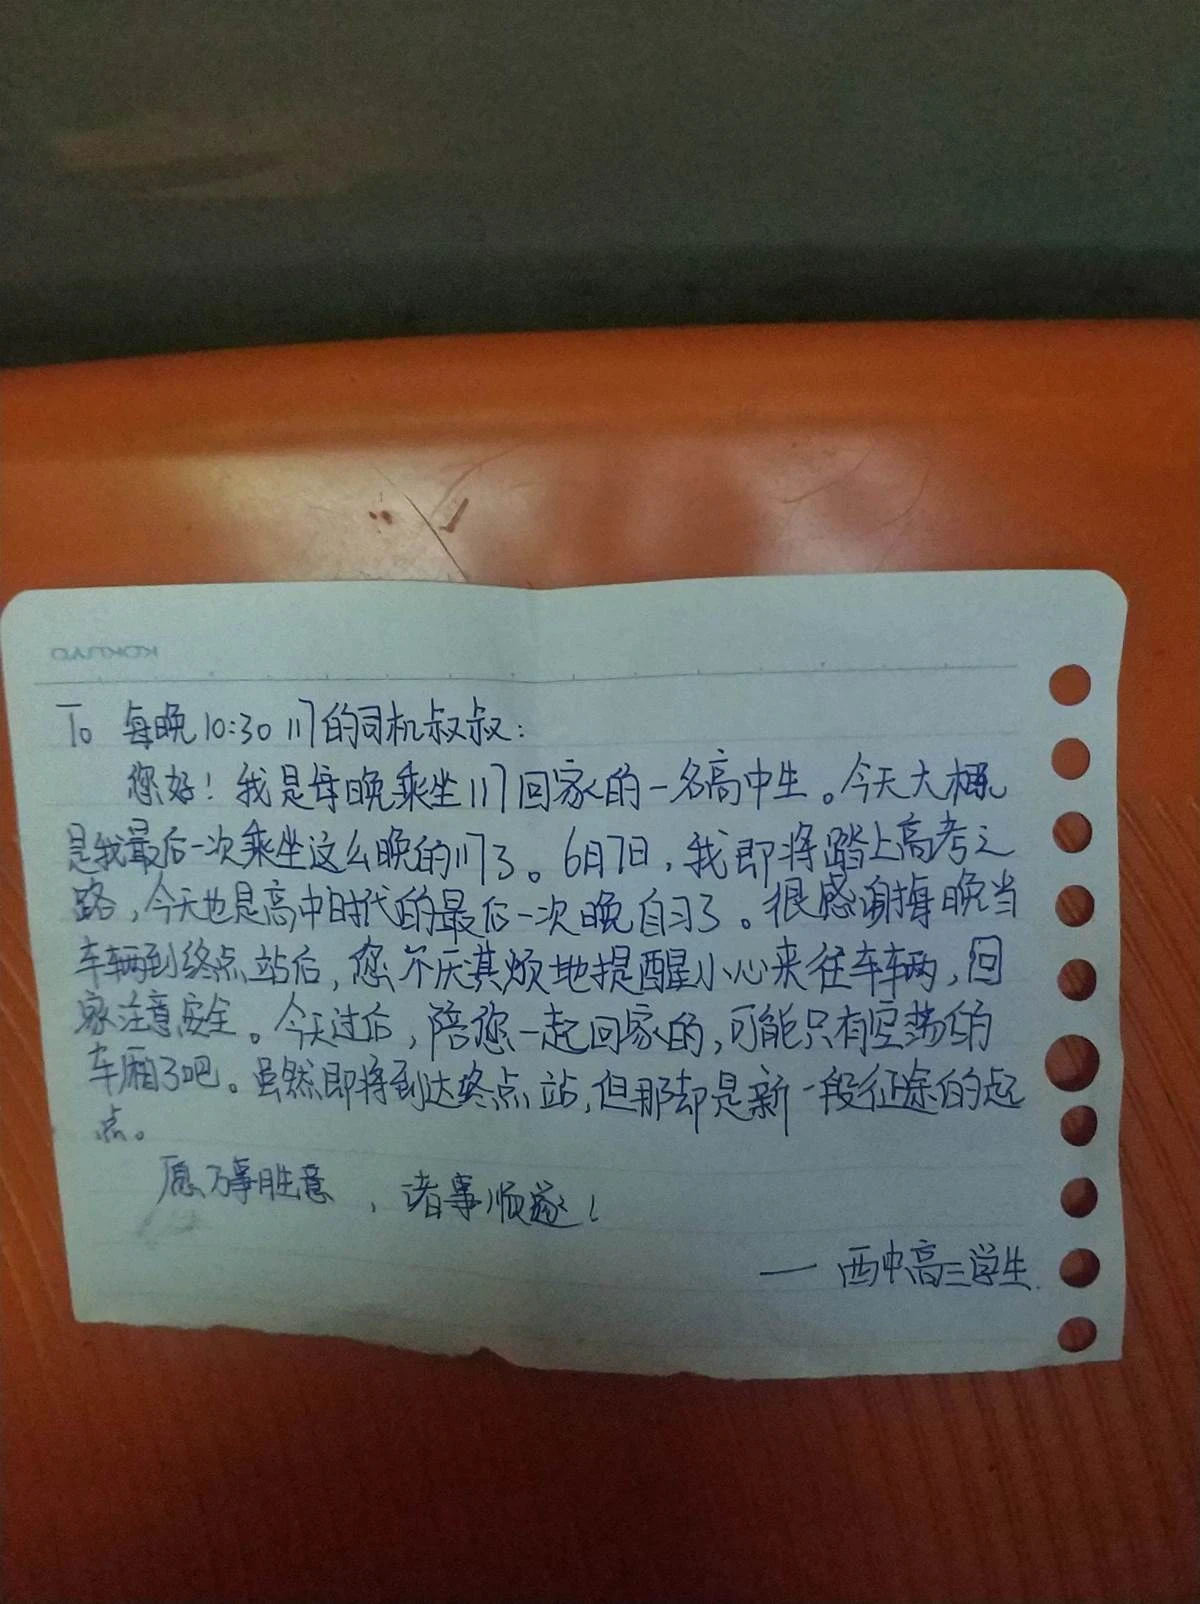 KOKUYO
To 每晚10:30 117的司机叔叔：
您好！我是每晚乘坐117回家的一名高中生。今天大概
是我最后一次乘坐这么晚的117了。6月7日，我即将踏上高考之
路，今天也是高中时代的最后一次晚自习了。很感谢每晚当
车辆到终点站后，您不厌其烦地提醒小心来往车辆，回
家注意安全。今天过后，陪您一起回家的，可能只有空荡的
车厢了吧。虽然即将到达终点站，但那却是新一段征途的起
点。
愿万事胜意，诸事顺遂！
—— 西中高三学生.